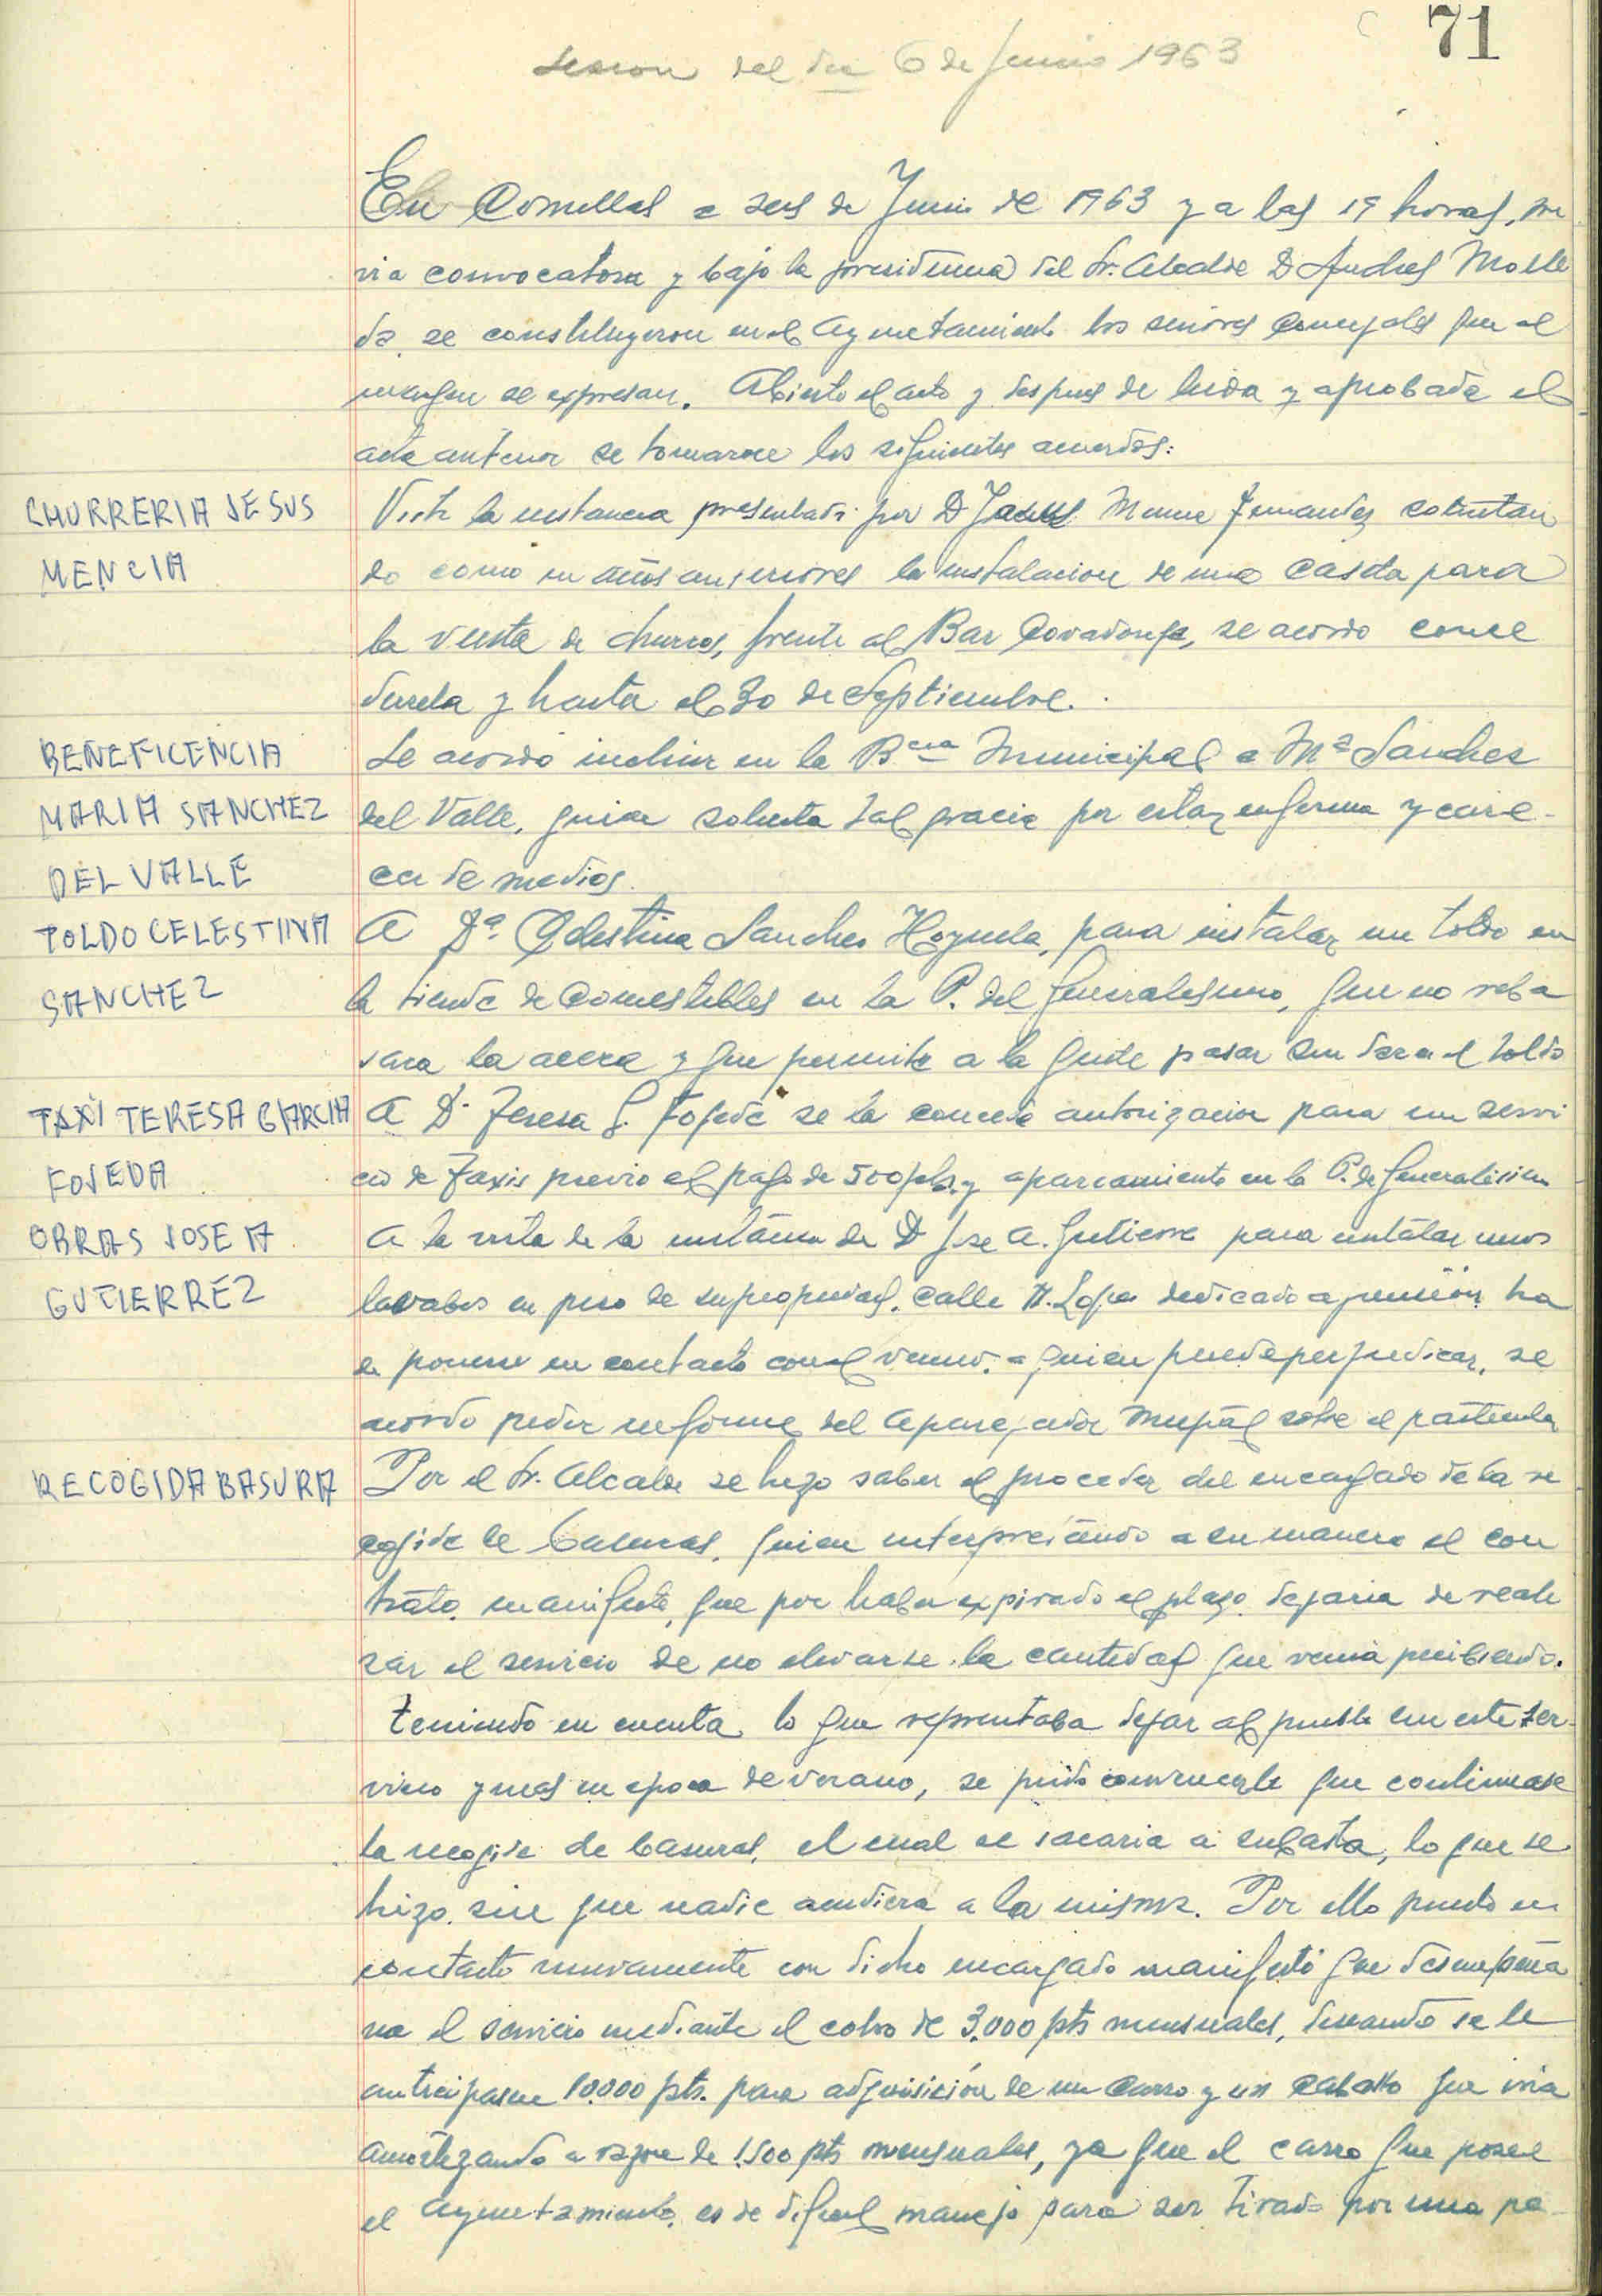 71
Sesion del dia 6 de Junio 1963
En Comillas a seis de Junio de 1963 y a las 19 horas, pre
via convocatoria y bajo la presidencia del Sr. Alcalde D Andres Molle
da, se constituyeron en el Ayuntamiento los señores Concejales que al
margen se expresan. Abierto el acto y despues de leida y aprobada el
acta anterior se tomaron los siguientes acuerdos:
CHURRERIA JESUS
MENCIA
Vista la instancia presentada por D Jesus Fernandez solicitan
do como en años anteriores la instalacion de una caseta para
la venta de churros, frente al Bar Covadonga, se acordo conce
dersela y hasta el 30 de Septiembre.
BENEFICENCIA
MARIA SANCHEZ
DEL VALLE
Se acordó incluir en la Bcia Municipal a Mª Sanchez
del Valle, quien solicita tal gracia por estar enferma y care-
cer de medios.
TOLDO CELESTINA
SANCHEZ
A Dª Celestina Sanchez Hoyuela, para instalar un toldo en
la tienda de Comestibles en la P. del Generalisimo, que no reba
sara la acera y que permita a la gente pasar sin dar en el toldo
TAXI TERESA GARCIA
FOJEDA
A Dª Teresa G. Fojeda se la concede autorizacion para un servi
cio de Taxis previo el pago de 500 pts. y aparcamiento en la P. de Generalisimo
OBRAS JOSE A
GUTIERREZ
A la vista de la instancia de D Jose A. Gutierrez para instalar unos
lavabos en piso de su propiedad, calle A. Lopez dedicado a pension ha
de ponerse en contacto con el vecino, a quien puede perjudicar, se
acordo pedir informe del Aparejador Mupal sobre el particular
RECOGIDA BASURA
Por el Sr. Alcalde se hizo saber el proceder del encargado de la re
cogida de basuras, quien interpretando a su manera el con
trato, manifesto, que por haber expirado el plazo dejaria de reali
zar el servicio de no elevarse la cantidad que venia percibiendo.
Teniendo en cuenta lo que representaba dejar al pueblo sin este ser-
vicio y mas en epoca de verano, se pudo convencerle que continuase
la recogida de basuras, el cual se sacaria a subasta, lo que se
hizo sin que nadie acudiera a la misma. Por ello puesto en
contacto nuevamente con dicho encargado manifestó que desempeña
ria el servicio mediante el cobro de 3.000 pts mensuales, deseando se le
anticipasen 10.000 pts. para adquisición de un Carro y un Caballo que iria
amortizando a razon de 1.500 pts mensuales, ya que el carro que posee
el Ayuntamiento, es de dificil manejo para ser tirado por una pe